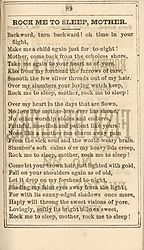 89
ROCK ME TO SLEEP, MOTHER.
Backward, turn backward! oh time in your
flight,
Make me a child again just for to-night!
Mother, come back from the echoless shore,
Take me again to your heart as of yore,
Kiss from my forehead the furrows of care,
Smooth the few silver threads out of my hair.
Over my slumbers your loving watch keep,
Rock me to sleep, mother, rock me to sleep!
Over my heart in the days that are flown,
No
From the sick soul and the world-weary brain.
Slumber's soft calms o'er my heavy lids creep,
Rock me to sleep, mother, rock me to sleep!
Come let your brown hair just lighted with gold,
Fall on your shoulders again as of old,
Let it drop on my forehead to-night,
Shading my faint eyes away from the light;
For with its sunny-edged shadows once more,
Haply will throng the sweet visions of yore,
Lovingly, softly, its bright billows sweep,
Rock me to sleep, mother, rock me to sleep!